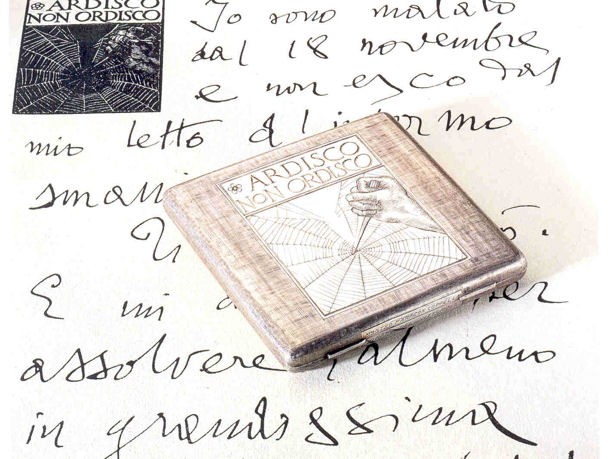 ARDISCO
NON ORDISCO
Io sono malato
dal 18 novembre
e non esco dal
mio letto
E mi
assolvere almeno
in grandissima
ARDISCO
NON ORDISCO